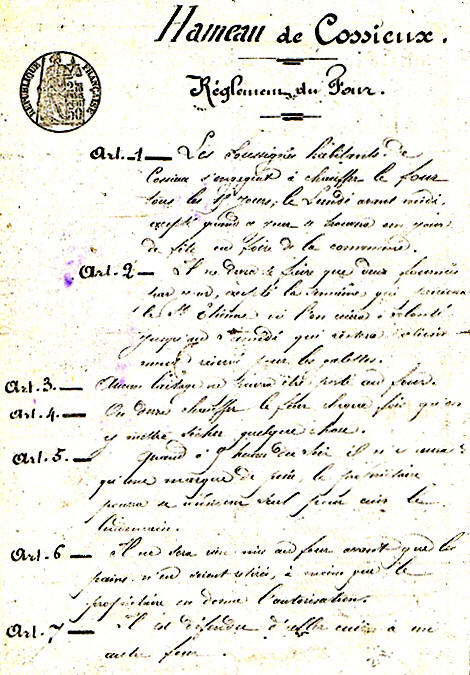 Hameau de Cossieux.
Réglement du Four.
RÉPUBLIQUE FRANÇAISE
Art. 1 — Les soussignés habitants de
Cossieux s'engagent à chauffer le four
tous les jours, le Lundi avant midi,
excepté quand ce jour se trouvera un jour
de fête ou foire de la commune.
Art. 2 — Il ne devra se faire que deux fournées
par jour, excepté la semaine qui
la St Etienne où l'on cuira à volonté
jusqu'au samedi qui restera
réservé pour les galettes.
Art. 3. — Aucun ne pourra être porté au four.
Art. 4. — On devra chauffer le four chaque fois qu'on
y mettra sécher quelque chose.
Art. 5. — Quand à heures du soir il n'y aura
qu'une marque de prise, le propriétaire
pourra se seul pour cuire le
lendemain.
Art. 6 — Il ne sera rien mis au four avant que les
pains n'en soient retirés, à moins que le
propriétaire en donne l'autorisation.
Art. 7 — Il est défendu d'aller cuire à un
autre four.